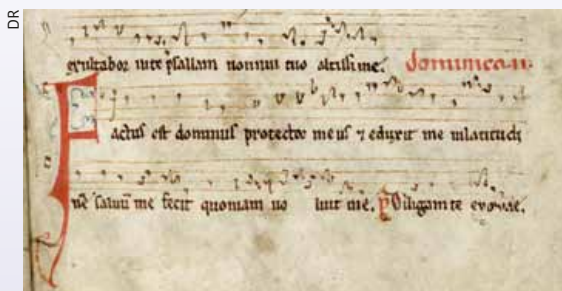 DR
exultabor in te psallam nomini tuo altissime. dominica .ii.
Factus est dominus protector meus ⁊ eduxit me inlatitudi
nē saluū me fecit quoniam uo luit me. Diligam te euouae.